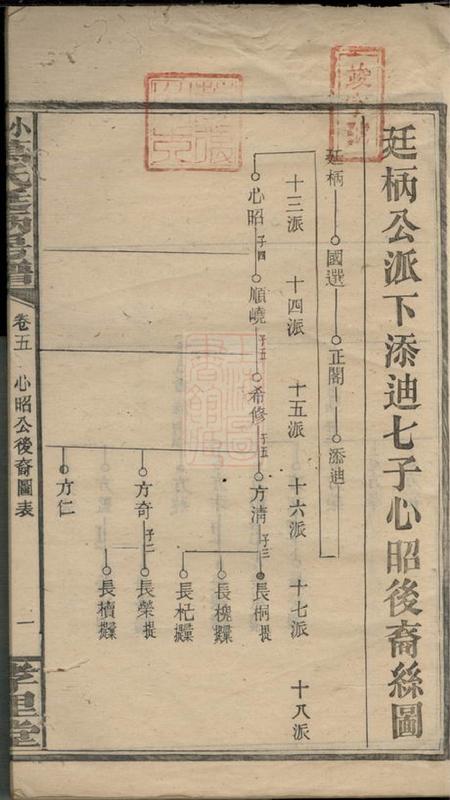 廷柄公派下添迪七子心昭後裔絲圖
廷柄 國選 正閣 添迪
十三派 十四派 十五派 十六派 十七派 十八派
心昭 子四 順嶢 子五 希修 子五 方清 子三 長桐 提
長櫆
長杞
方奇 子二 長榮 提
長櫝
方仁
卷五 心昭公後裔圖表 一